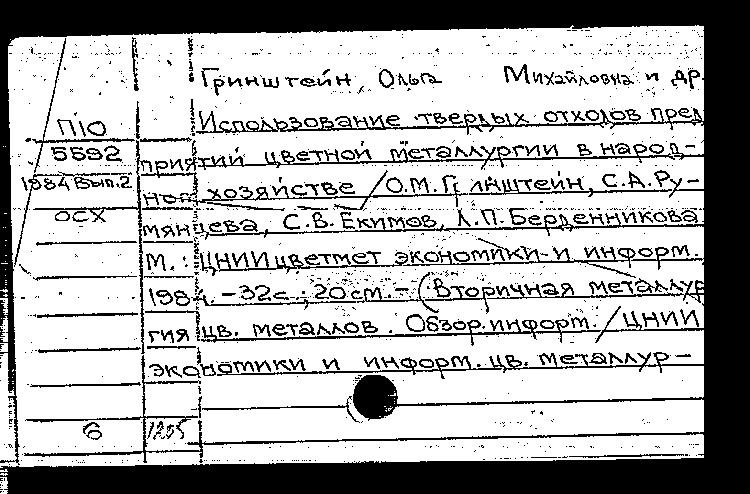 Гринштейн, Ольга Михайловна и др.
Использование твердых отходов пред
П10
5592
приятий цветной металлургии в народ-
1984 Вып.2
ном хозяйстве / О.М. Гринштейн, С.А. Ру-
ОСХ
мянцева, С.В. Екимов, Л.П. Берденникова
М.: ЦНИИцветмет экономики и информ.
1984. - 32с.; 20см. - (Вторичная металлур
гия цв. металлов. Обзор. информ. / ЦНИИ
экономики и информ. цв. металлур-
6 1205